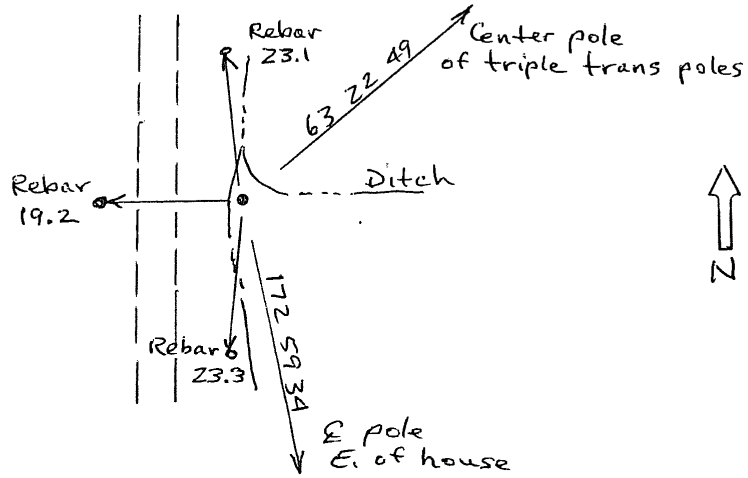 Rebar
23.1
Center pole
of triple trans poles
63 22 49
Ditch
Rebar
19.2
N
172 59 34
Rebar
23.3
℄ pole
E. of house